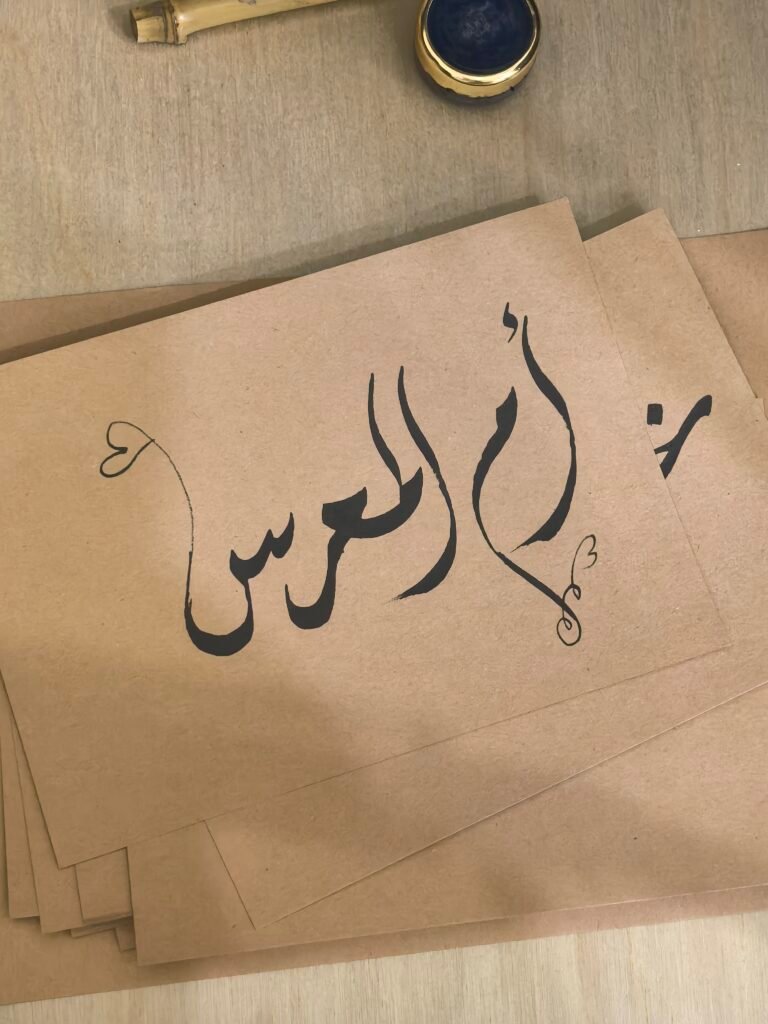 أم المعرس